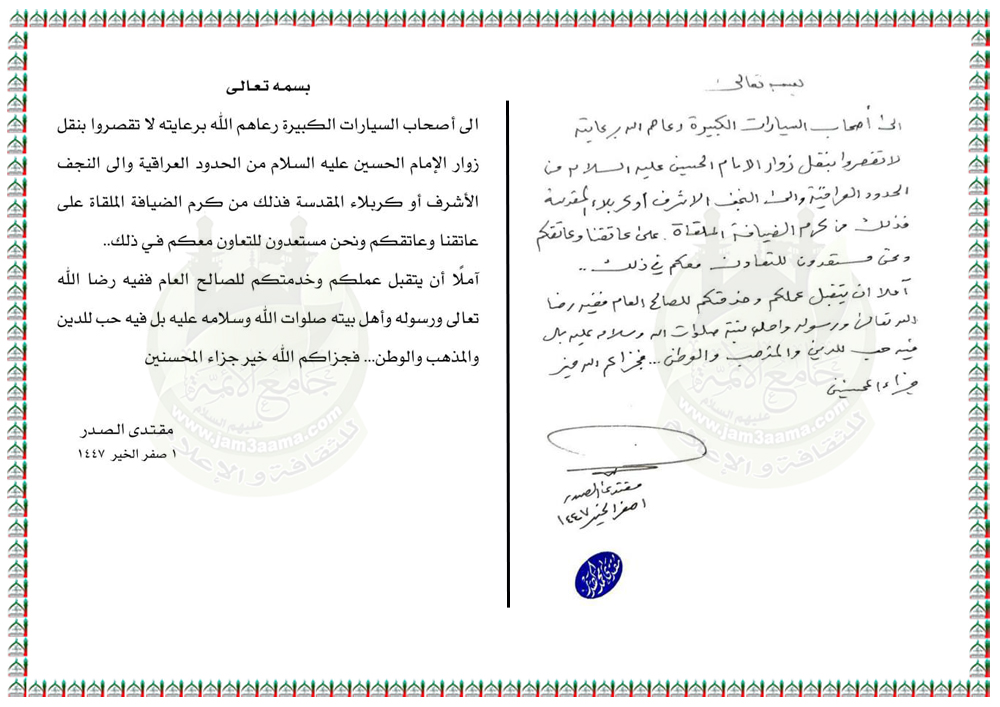 بسمه تعالى
الى أصحاب السيارات الكبيرة رعاهم الله برعايته
لا تقصروا بنقل زوار الامام الحسين عليه السلام من
الحدود العراقية والى النجف الاشرف أو كربلاء المقدسة
فذلك من كرم الضيافة الملقاة على عاتقنا وعاتقكم
ونحن مستعدون للتعاون معكم في ذلك ..
آملا ان يتقبل عملكم وخدمتكم للصالح العام ففيه رضا
الله تعالى ورسوله واهل بيته صلوات الله وسلامه عليه بل
فيه حب للدين والمذهب والوطن ... فجزاكم الله خير
جزاء المحسنين
مقتدى الصدر
١ صفر الخير ١٤٤٧
بسمه تعالى
الى أصحاب السيارات الكبيرة رعاهم الله برعايته لا تقصروا بنقل
زوار الإمام الحسين عليه السلام من الحدود العراقية والى النجف
الأشرف أو كربلاء المقدسة فذلك من كرم الضيافة الملقاة على
عاتقنا وعاتقكم ونحن مستعدون للتعاون معكم في ذلك..
آملًا أن يتقبل عملكم وخدمتكم للصالح العام ففيه رضا الله
تعالى ورسوله وأهل بيته صلوات الله وسلامه عليه بل فيه حب للدين
والمذهب والوطن... فجزاكم الله خير جزاء المحسنين
مقتدى الصدر
١ صفر الخير ١٤٤٧
جامع الأئمة
عليهم السلام
www.jam3aama.com
للثقافة و الإعلام